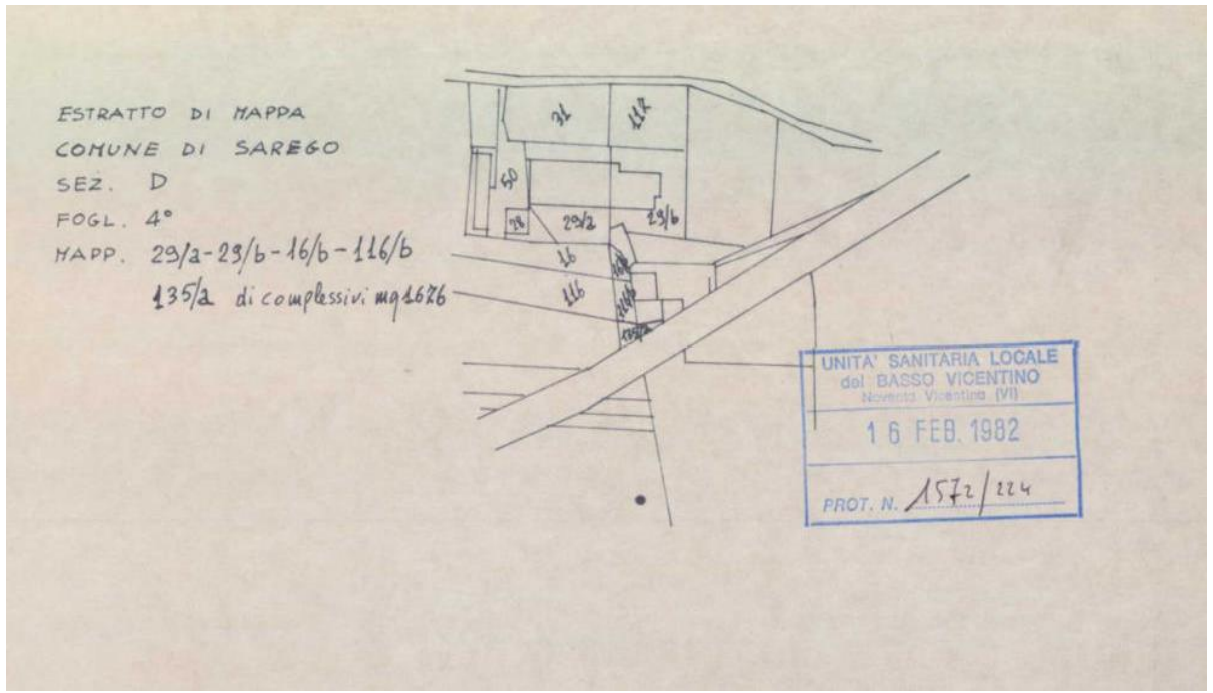 ESTRATTO DI MAPPA
COMUNE DI SAREGO
SEZ. D
FOGL. 4°
MAPP. 29/a-29/b-16/b-116/b
135/a di complessivi mq 1676
31
117
50
28
29/a
29/b
16
16/b
116
116/b
135/a
UNITA' SANITARIA LOCALE
del BASSO VICENTINO
Noventa Vicentina (VI)
16 FEB. 1982
PROT. N. 1572/224